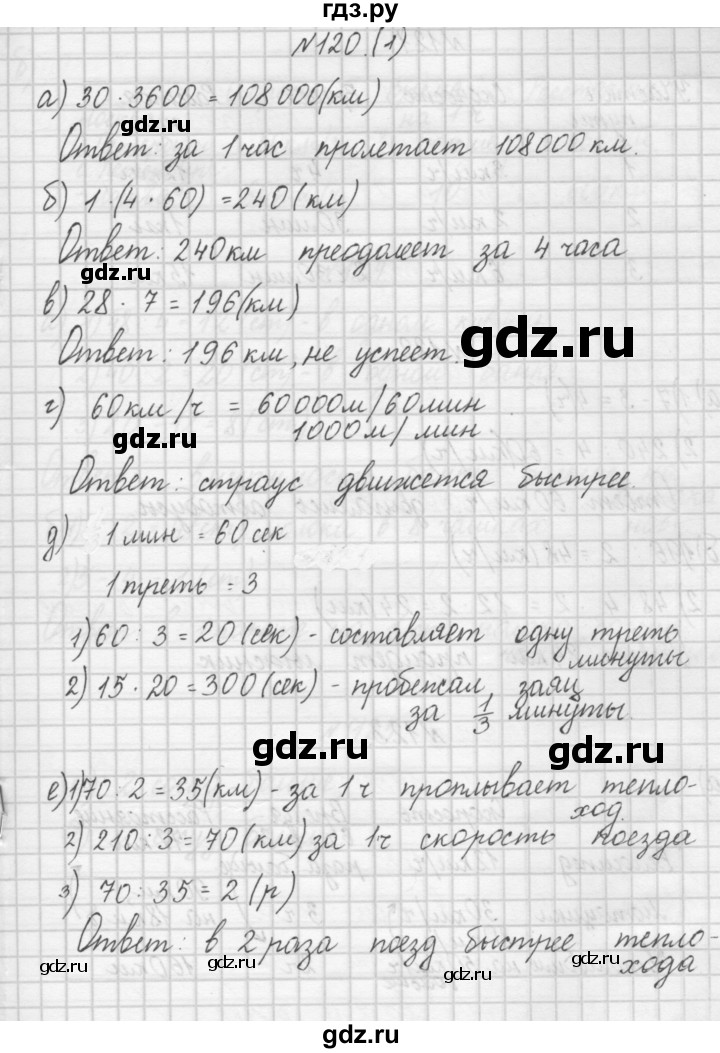 гдз.ру
№120.(1)
а) 30 · 3600 = 108000(км)
gdz.ru
Ответ: за 1 час пролетает 108000 км.
б) 1 · (4 · 60) = 240 (км)
Ответ: 240 км преодолеет за 4 часа
gdz.ru
в) 28 · 7 = 196(км)
gdz.ru
Ответ: 196 км, не успеет.
г) 60 км/ч = 60000м/60мин
1000м/мин
gdz.ru
Ответ: страус движется быстрее.
д) 1 мин = 60 сек
1 треть = 3
1) 60 : 3 = 20 (сек) - составляет одну треть
минуты
gdz.ru
2) 15 · 20 = 300 (сек) - пробежал заяц
за 1/3 минуты.
gdz.ru
gdz.ru
е) 1) 70 : 2 = 35(км) - за 1 ч проплывает тепло-
ход.
2) 210 : 3 = 70 (км) за 1ч скорость поезда
3) 70 : 35 = 2 (р)
Ответ: в 2 раза поезд быстрее тепло-
хода
gdz.ru
gdz.ru
gdz.ru
gdz.ru
gdz.ru